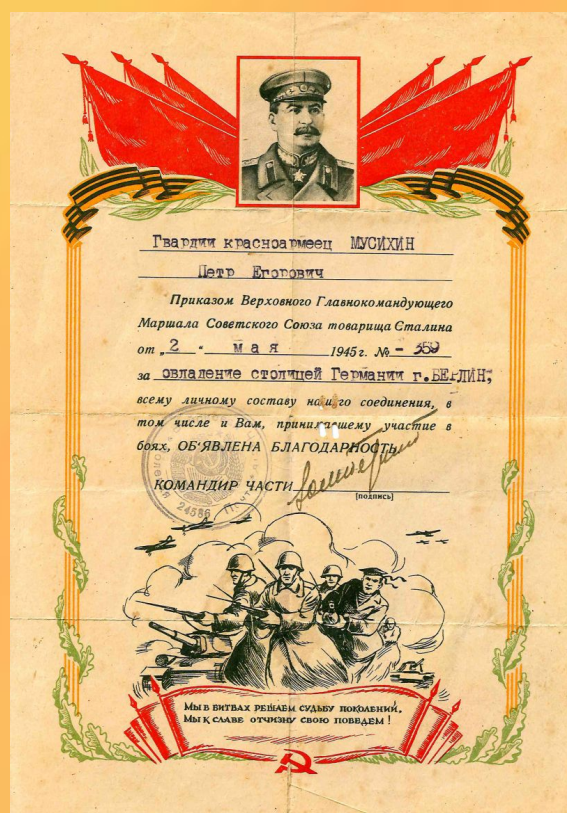 Гвардии красноармеец МУСИХИН
Петр Егорович
Приказом Верховного Главнокомандующего
Маршала Советского Союза товарища Сталина
от „2“ мая 1945г. № - 359
за овладение столицей Германии г.БЕРЛИН,
всему личному составу нашего соединения, в
том числе и Вам, принимавшему участие в
боях, ОБ‘ЯВЛЕНА БЛАГОДАРНОСТЬ
КОМАНДИР ЧАСТИ
[подпись]
24586
МЫ В БИТВАХ РЕШАЕМ СУДЬБУ ПОКОЛЕНИЙ,
МЫ К СЛАВЕ ОТЧИЗНУ СВОЮ ПОВЕДЕМ!